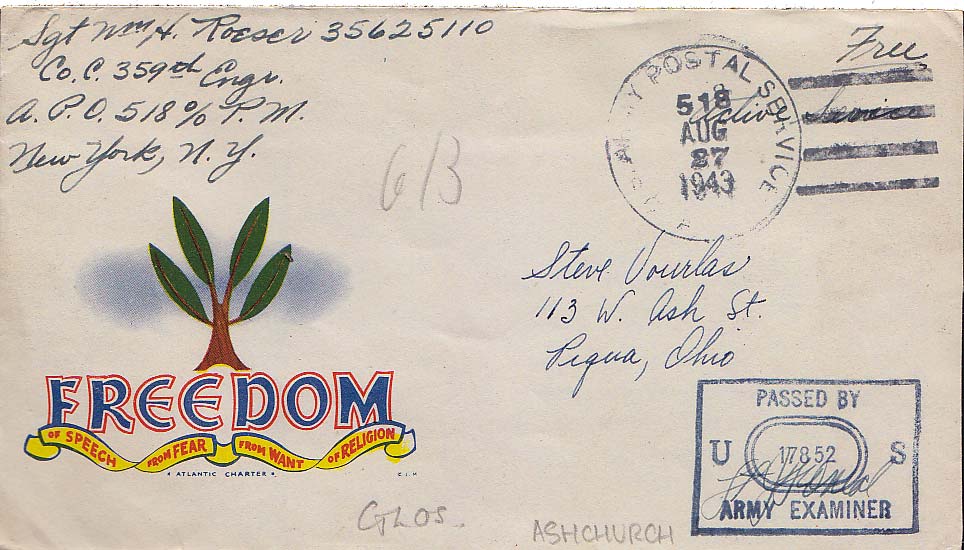 Sgt Wm H. Roeser 35625110
Co. C. 359th Engr.
A.P.O. 518 % P.M.
New York, N.Y.
Free
Active Service
ARMY POSTAL SERVICE
518
AUG
27
1943
613
Steve Vourlas
113 W. Ash St.
Piqua, Ohio
FREEDOM
OF SPEECH FROM FEAR FROM WANT OF RELIGION
• ATLANTIC CHARTER •
C.I.H
PASSED BY
U 17852 S
ARMY EXAMINER
GLOS.
ASHCHURCH